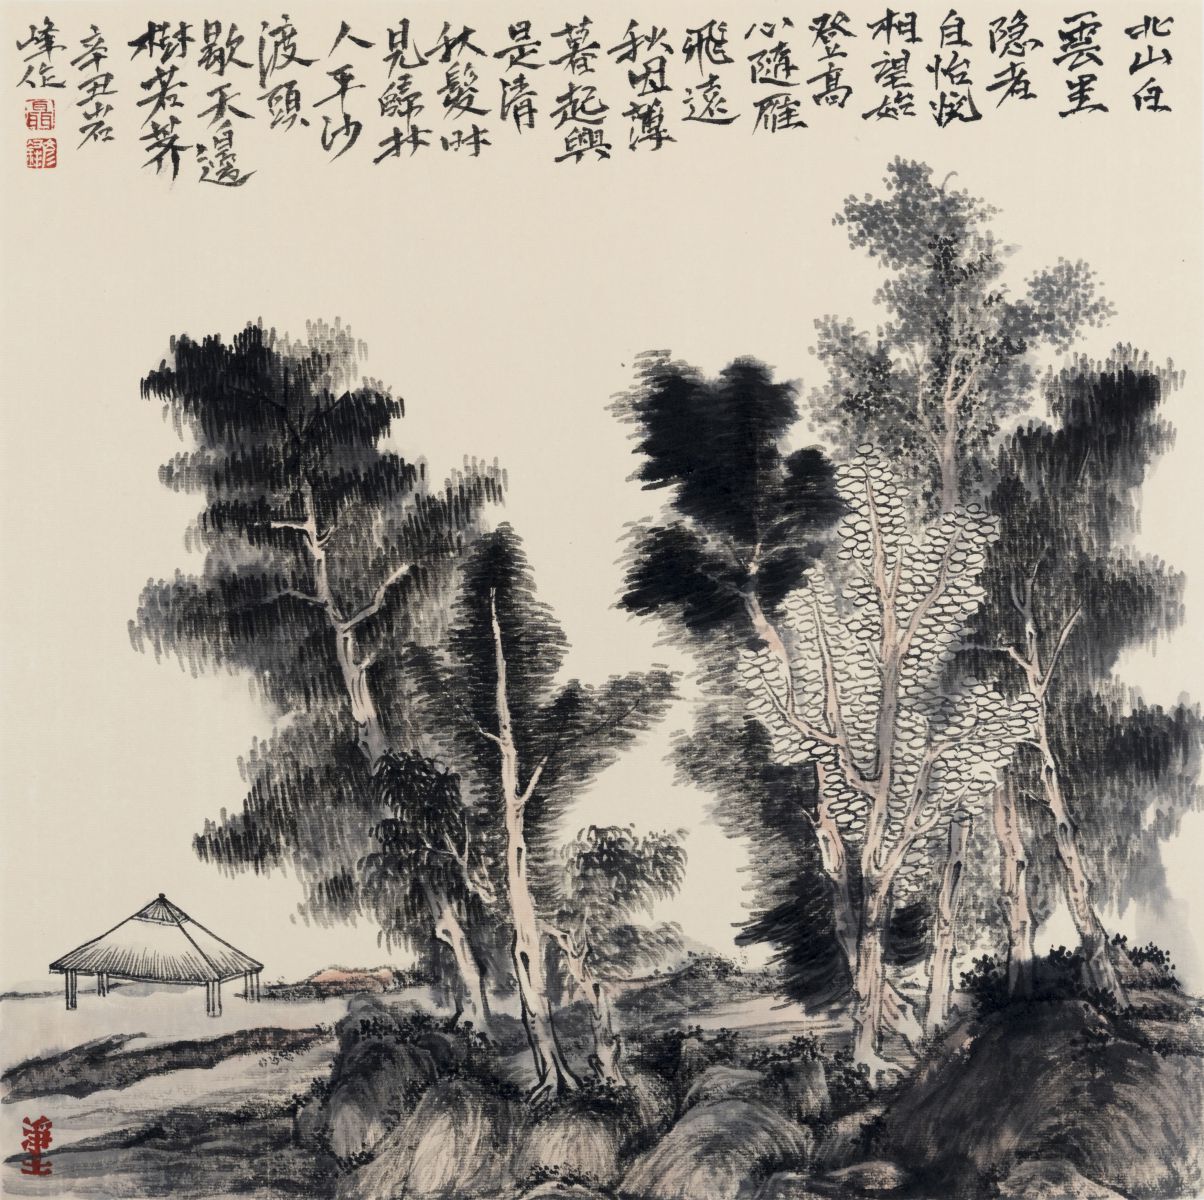 北山白
雲里
隐者
自怡悦
相望始
登高
心隨雁
飛遠
秋因薄
暮起興
是清
秋發时
見歸村
人平沙
渡頭
歇天邊
樹若荠
辛丑岩
峰作